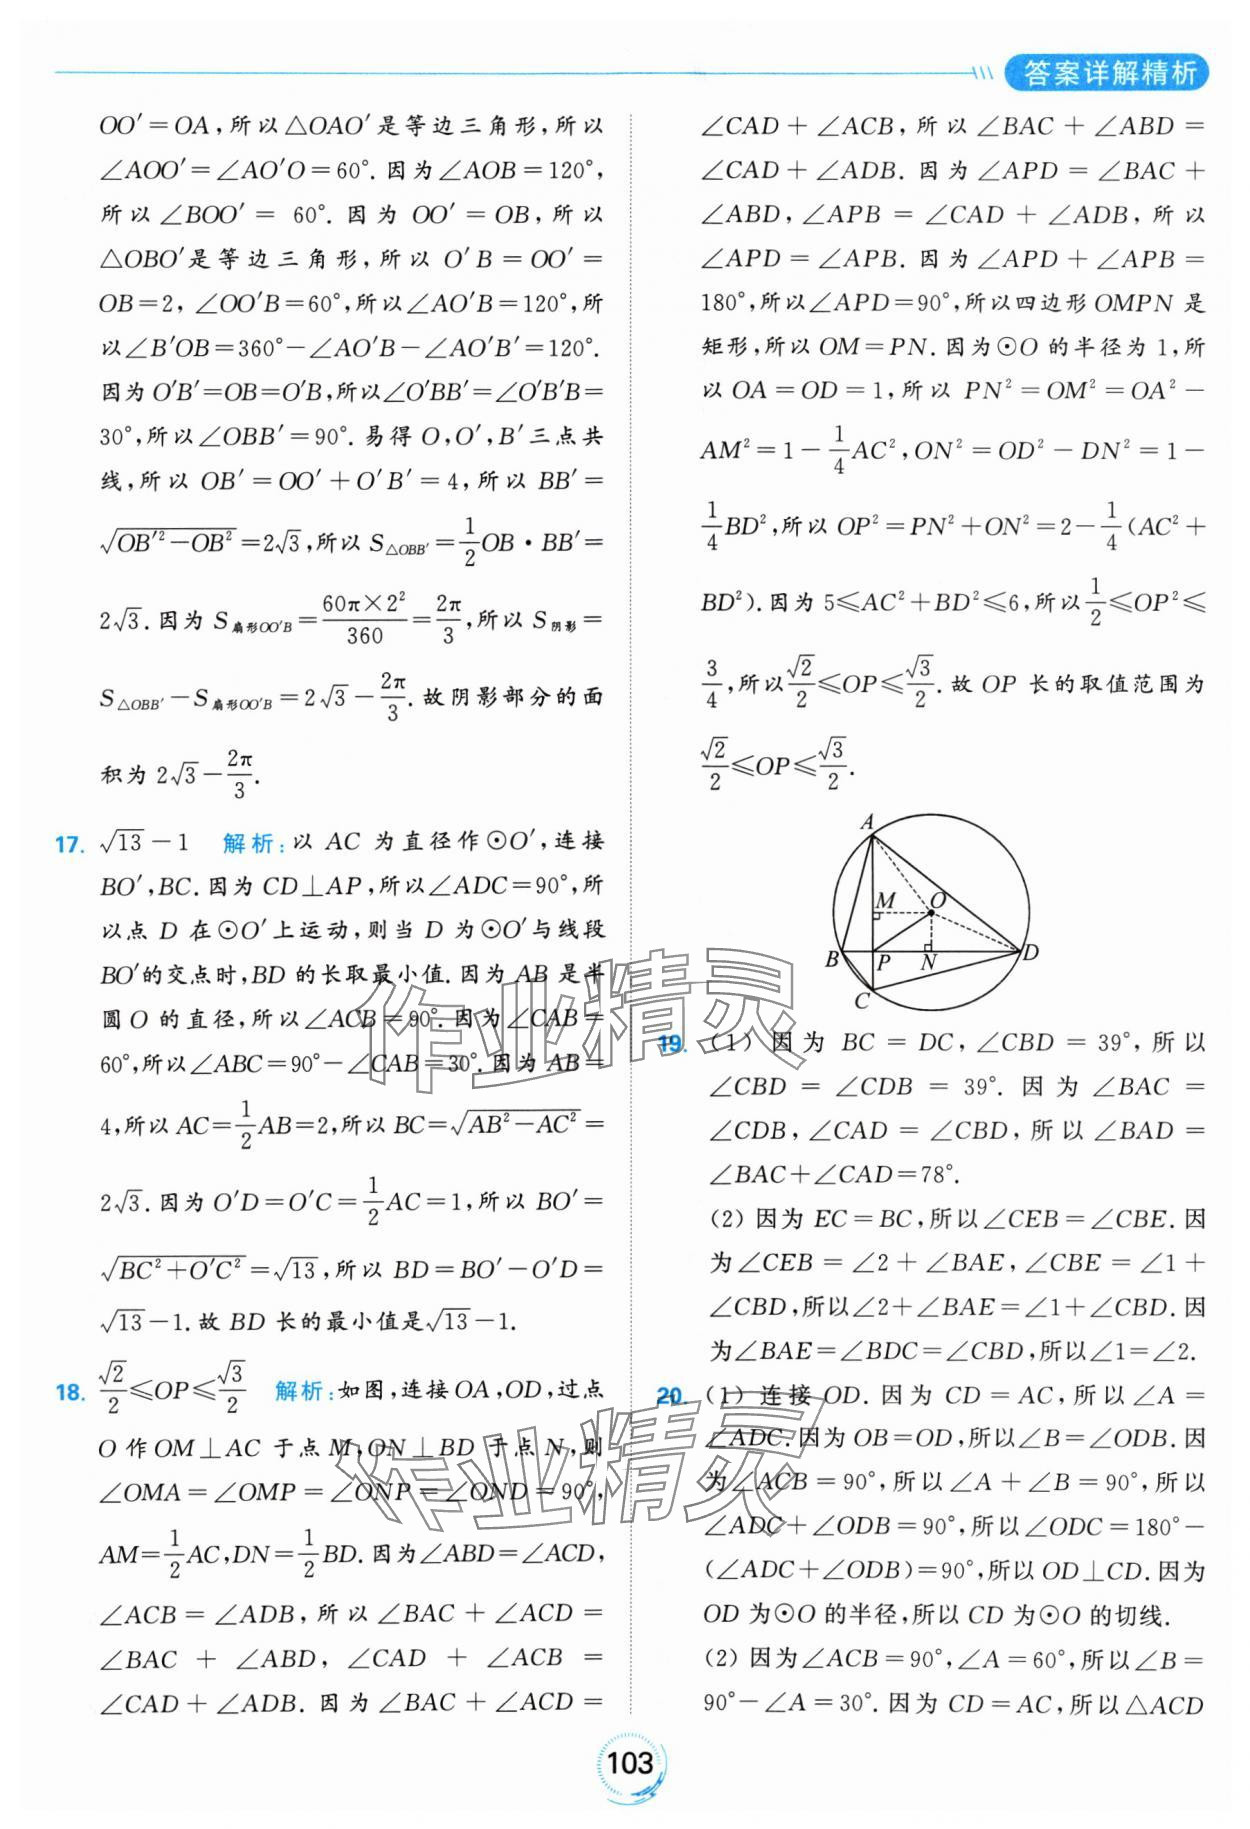 答案详解精析
OO′=OA,所以△OAO′是等边三角形,所以
∠AOO′=∠AO′O=60°.因为∠AOB=120°,
所以∠BOO′= 60°.因为 OO′=OB,所以
△OBO′是等边三角形,所以 O′B=OO′=
OB=2,∠OO′B=60°,所以∠AO′B=120°,所
以∠B′OB=360°-∠AO′B-∠AO′B′=120°.
因为 O′B′=OB=O′B,所以∠O′BB′=∠O′B′B=
30°,所以∠OBB′=90°.易得 O,O′,B′三点共
线,所以 OB′=OO′+O′B′=4,所以 BB′=
√(OB′²-OB²)=2√3,所以 S△OBB′=1/2 OB·BB′=
2√3.因为 S扇形OO′B=(60π×2²)/360=2π/3,所以 S阴影=
S△OBB′-S扇形OO′B=2√3-2π/3.故阴影部分的面
积为 2√3-2π/3.
17. √13-1 解析:以 AC 为直径作⊙O′,连接
BO′,BC.因为 CD⊥AP,所以∠ADC=90°,所
以点 D 在⊙O′上运动,则当 D 为⊙O′与线段
BO′的交点时,BD 的长取最小值.因为 AB 是半
圆 O 的直径,所以∠ACB=90°.因为∠CAB=
60°,所以∠ABC=90°-∠CAB=30°.因为 AB=
4,所以 AC=1/2 AB=2,所以 BC=√(AB²-AC²)=
2√3.因为 O′D=O′C=1/2 AC=1,所以 BO′=
√(BC²+O′C²)=√13,所以 BD=BO′-O′D=
√13-1.故 BD 长的最小值是√13-1.
18. √2/2≤OP≤√3/2 解析:如图,连接 OA,OD,过点
O 作 OM⊥AC 于点 M,ON⊥BD 于点 N,则
∠OMA=∠OMP=∠ONP=∠OND=90°,
AM=1/2 AC,DN=1/2 BD.因为∠ABD=∠ACD,
∠ACB=∠ADB,所以∠BAC+∠ACD=
∠BAC + ∠ABD, ∠CAD + ∠ACB =
∠CAD+∠ADB.因为∠BAC+∠ACD=
∠CAD+∠ACB,所以∠BAC+∠ABD=
∠CAD+∠ADB.因为∠APD=∠BAC+
∠ABD,∠APB=∠CAD+∠ADB,所以
∠APD=∠APB.因为∠APD+∠APB=
180°,所以∠APD=90°,所以四边形 OMPN 是
矩形,所以 OM=PN.因为⊙O 的半径为 1,所
以 OA=OD=1,所以 PN²=OM²=OA²-
AM²=1-1/4 AC²,ON²=OD²-DN²=1-
1/4 BD²,所以 OP²=PN²+ON²=2-1/4(AC²+
BD²).因为 5≤AC²+BD²≤6,所以1/2≤OP²≤
3/4,所以√2/2≤OP≤√3/2.故 OP 长的取值范围为
√2/2≤OP≤√3/2.
A
M
O
B
P
N
D
C
19. (1) 因为 BC=DC,∠CBD=39°,所以
∠CBD=∠CDB=39°.因为∠BAC=
∠CDB,∠CAD=∠CBD,所以∠BAD=
∠BAC+∠CAD=78°.
(2) 因为 EC=BC,所以∠CEB=∠CBE.因
为∠CEB=∠2+∠BAE,∠CBE=∠1+
∠CBD,所以∠2+∠BAE=∠1+∠CBD.因
为∠BAE=∠BDC=∠CBD,所以∠1=∠2.
20. (1) 连接 OD.因为 CD=AC,所以∠A=
∠ADC.因为 OB=OD,所以∠B=∠ODB.因
为∠ACB=90°,所以∠A+∠B=90°,所以
∠ADC+∠ODB=90°,所以∠ODC=180°-
(∠ADC+∠ODB)=90°,所以 OD⊥CD.因为
OD 为⊙O 的半径,所以 CD 为⊙O 的切线.
(2) 因为∠ACB=90°,∠A=60°,所以∠B=
90°-∠A=30°.因为 CD=AC,所以△ACD
作业精灵
作业精灵
103